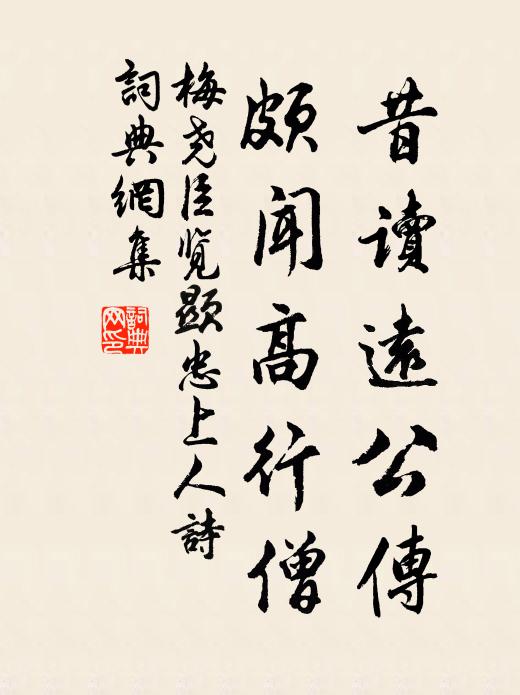 昔讀遠公傳
頗聞高行僧
梅尧臣览顯忠上人詩
詞典網集
詞典网印